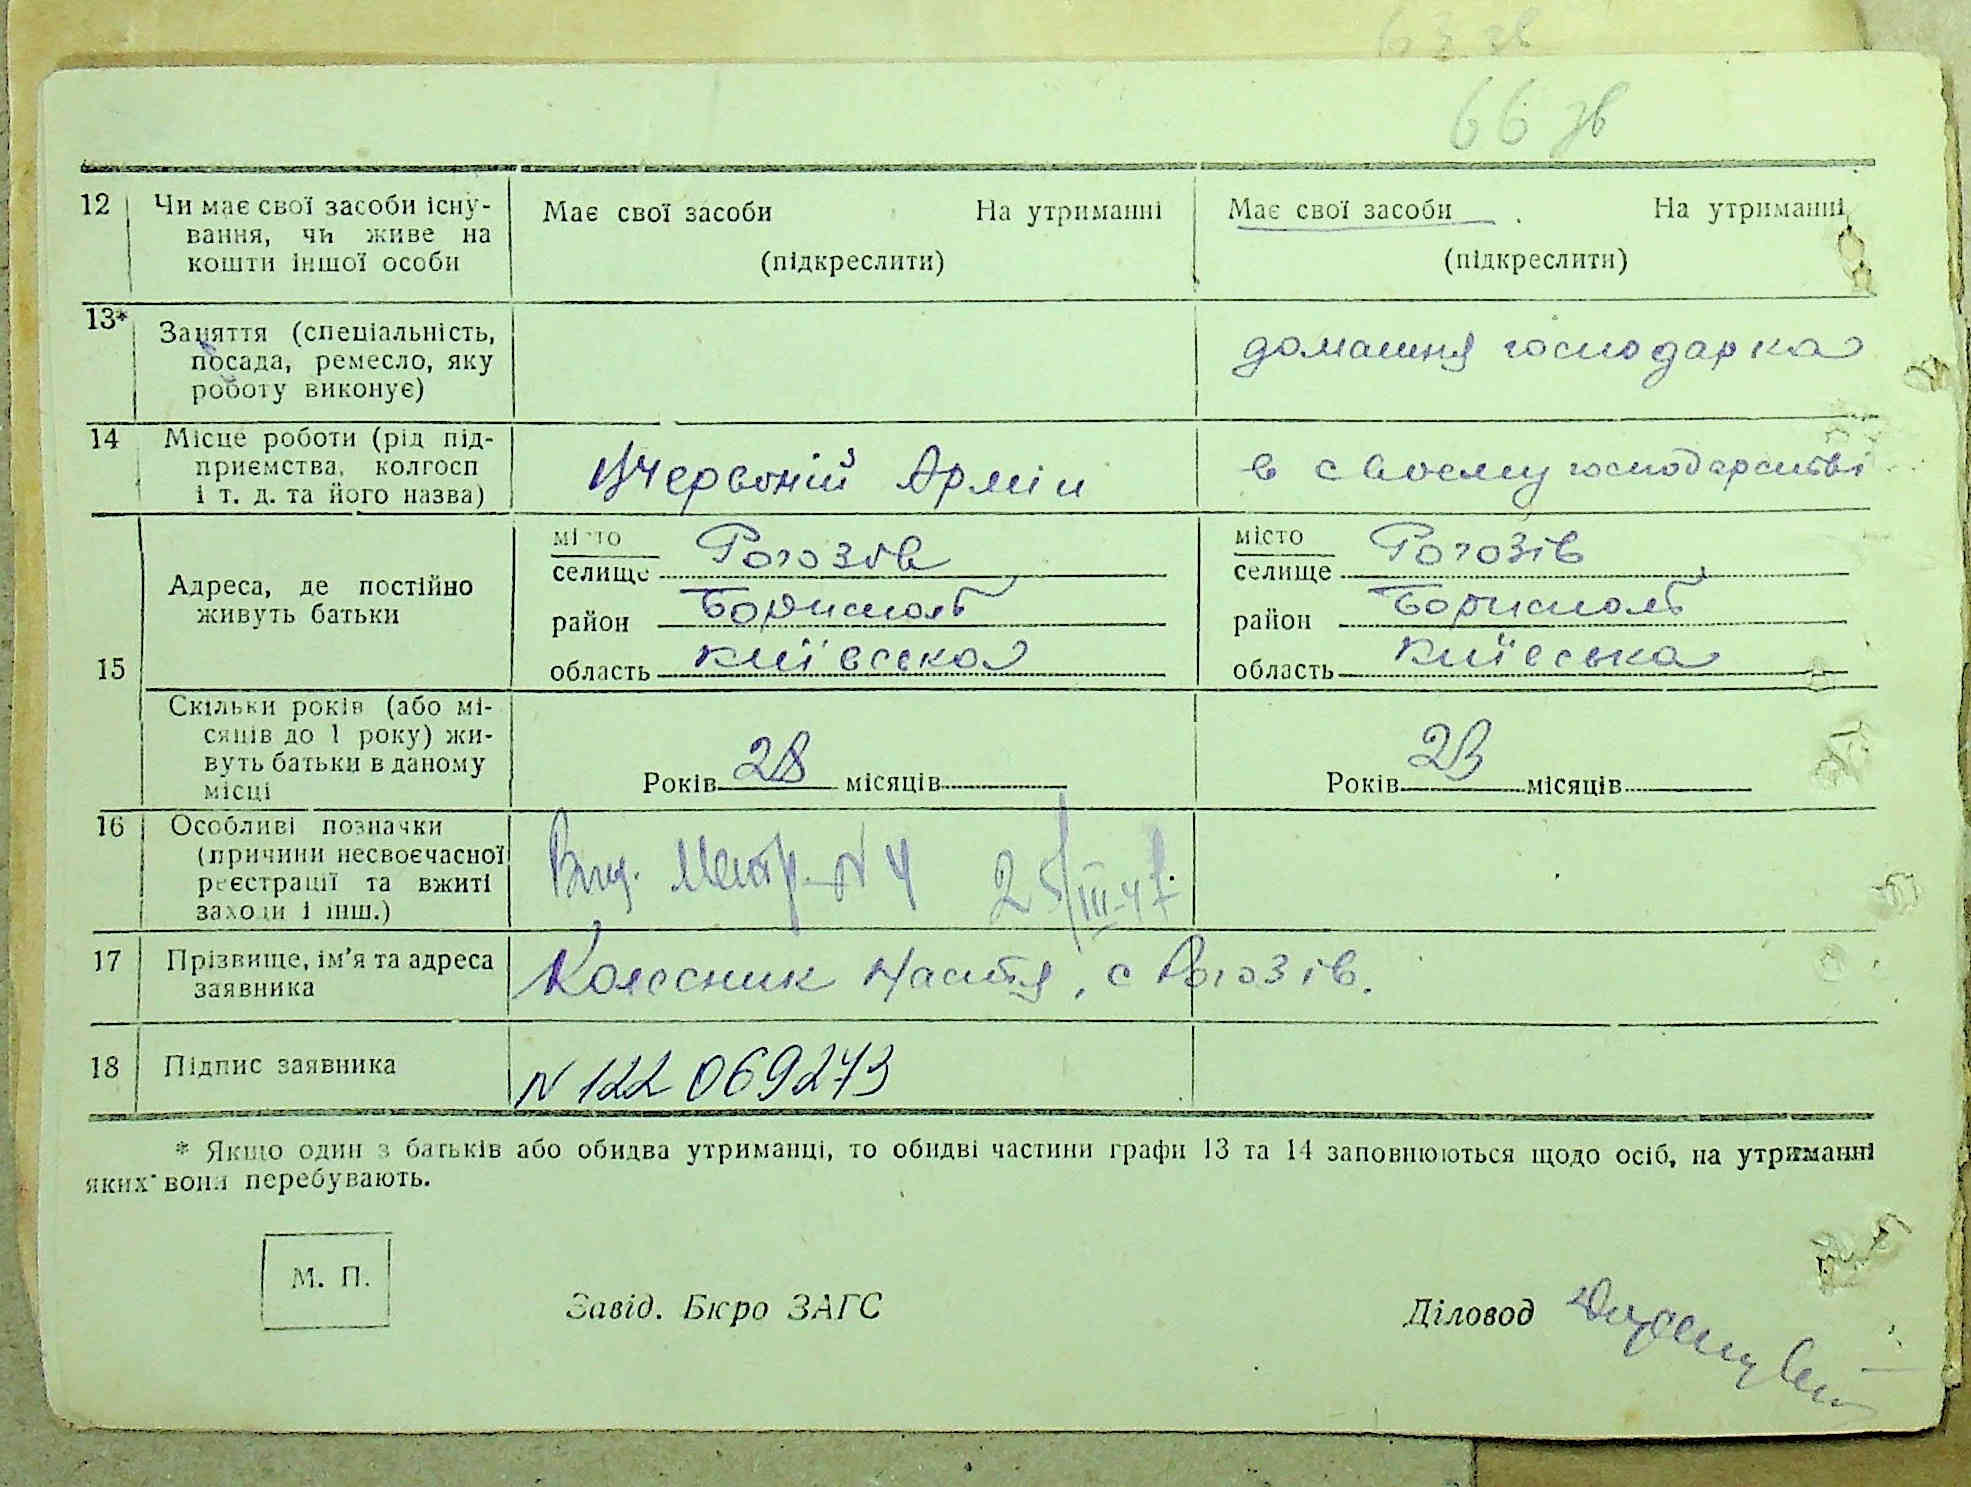 63 зв
66 зв
12 Чи має свої засоби існу-
вання, чи живе на
кошти іншої особи
Має свої засоби На утриманні
(підкреслити)
Має свої засоби На утриманні
(підкреслити)
13* Заняття (спеціальність,
посада, ремесло, яку
роботу виконує)
домашня господарка
14 Місце роботи (рід під-
приємства, колгосп
і т. д. та його назва)
У Червоній Армії
в своєму господарстві
15 Адреса, де постійно
живуть батьки
місто
селище Рогозів
район Бориспольс
область Київська
місто
селище Рогозів
район Бориспольс
область Київська
Скільки років (або мі-
сяців до 1 року) жи-
вуть батьки в даному
місці
Років 28 місяців
Років 23 місяців
16 Особливі позначки
(причини несвоєчасної
реєстрації та вжиті
заходи і інш.)
N 4 25/III-47
17 Прізвище, ім'я та адреса
заявника
Колесник Настя, с Рогозів.
18 Підпис заявника
N 122 069273
* Якщо один з батьків або обидва утриманці, то обидві частини графи 13 та 14 заповнюються щодо осіб, на утриманні
яких вони перебувають.
М. П.
Завід. Бюро ЗАГС
Діловод